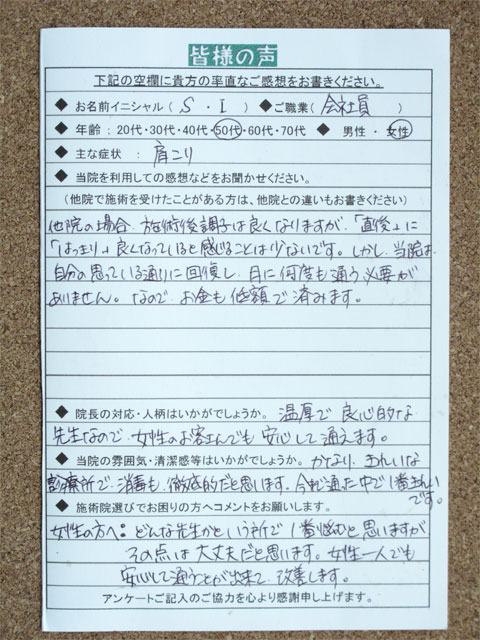 皆様の声
下記の空欄に貴方の率直なご感想をお書きください。
◆ お名前イニシャル（ S ・ I ） ◆ご職業（ 会社員 ）
◆ 年齢：20代・30代・40代・50代・60代・70代 ◆ 男性 ・ 女性
◆ 主な症状 ： 肩こり
◆ 当院を利用しての感想などをお聞かせください。
（他院で施術を受けたことがある方は、他院との違いもお書きください）
他院の場合、施術後調子は良くなりますが、「直後」に
「はっきり」良くなっていると感じることは少ないです。しかし、当院は、
自分の思っている通りに回復し、月に何度も通う必要が
ありません。なので、お金も低額で済みます。
◆ 院長の対応・人柄はいかがでしょうか。 温厚で良心的な
先生なので、女性のお客さんでも安心して通えます。
◆ 当院の雰囲気・清潔感等はいかがでしょうか。 かなりきれいな
診療所で、消毒も徹底的だと思います。今まで通った中で1番きれい
です。
◆ 施術院選びでお困りの方へコメントをお願いします。
女性の方へ：どんな先生かという所で1番悩むと思いますが
その点は大丈夫だと思います。女性一人でも
安心して通うことが出来て、改善します。
アンケートご記入のご協力を心より感謝申し上げます。